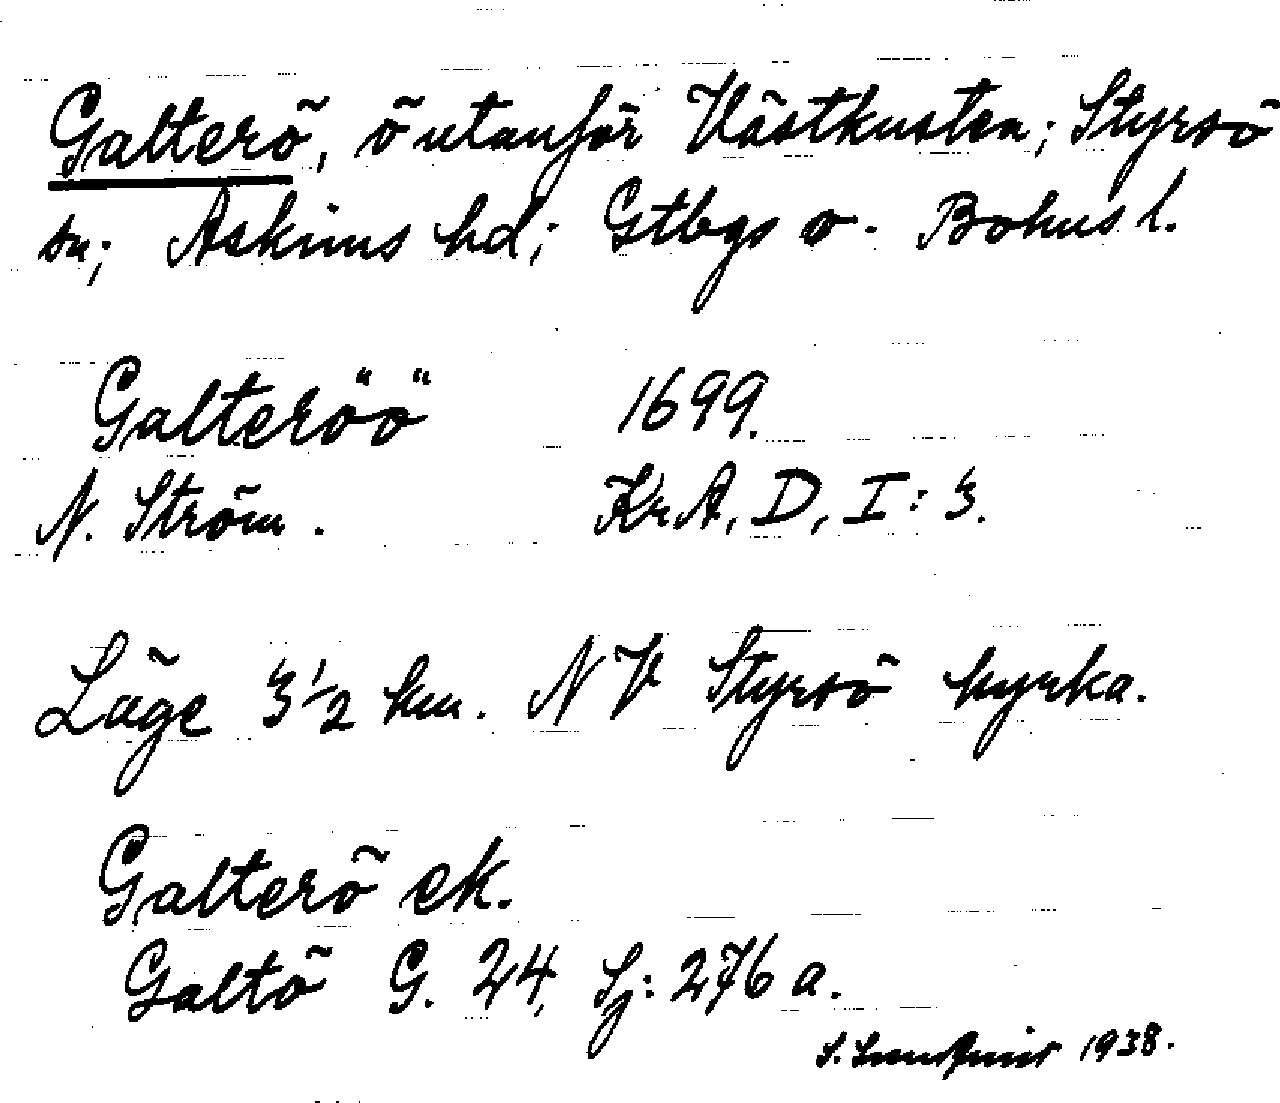 Galterö, ö utanför Västkusten; Styrsö
sn; Askims hd; Gtbgs o. Bohus l.
Galteröö 1699.
N. Ström. Kr.A, D, I: 3.
Läge 3 1/2 km. NV Styrsö kyrka.
Galterö ek.
Galtö G. 24, Sj: 276 a.
S. 1938.